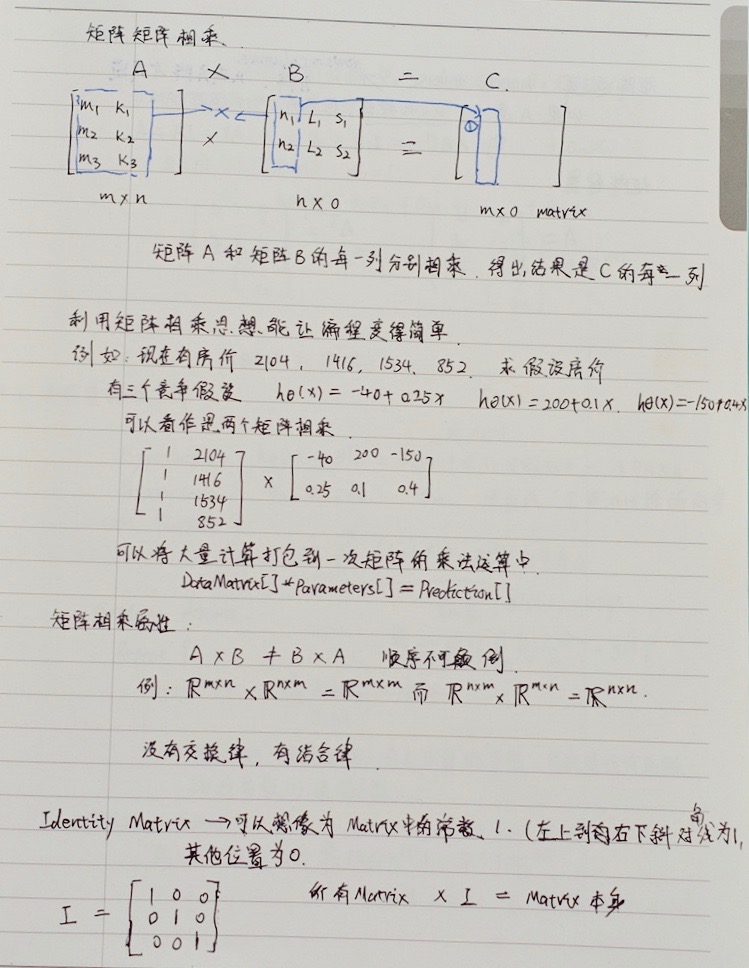 矩阵矩阵相乘.
A × B = C.
[m1 K1 m2 K2 m3 K3] × [n1 L1 S1 n2 L2 S2] = [ ① ]
m×n n×0 m×0 matrix
矩阵A和矩阵B的每一列分别相乘. 得出结果是C的每一列
利用矩阵相乘思想能让编程变得简单.
例如: 现在有房价 2104, 1416, 1534, 852. 求假设房价
有三个竞争假设 hθ(x) = -40+0.25x hθ(x)=200+0.1x. hθ(x)=-150+0.4x
可以看作是两个矩阵相乘.
1 2104 -40 200 -150
1 1416 × 0.25 0.1 0.4
1 1534
1 852
可以将大量计算打包到一次矩阵的乘法运算中.
DataMatrix[]*Parameters[]=Prediction[]
矩阵相乘属性:
A×B ≠ B×A 顺序不可颠倒.
例: ℝ^m×n × ℝ^n×m = ℝ^m×m 而 ℝ^n×m × ℝ^m×n = ℝ^n×n.
没有交换律, 有结合律.
Identity Matrix → 可以想像为 Matrix中的常数 1. (左上到右下斜对角线为1,
其他位置为0.
I = [1 0 0 0 1 0 0 0 1] 所有Matrix × I = Matrix本身